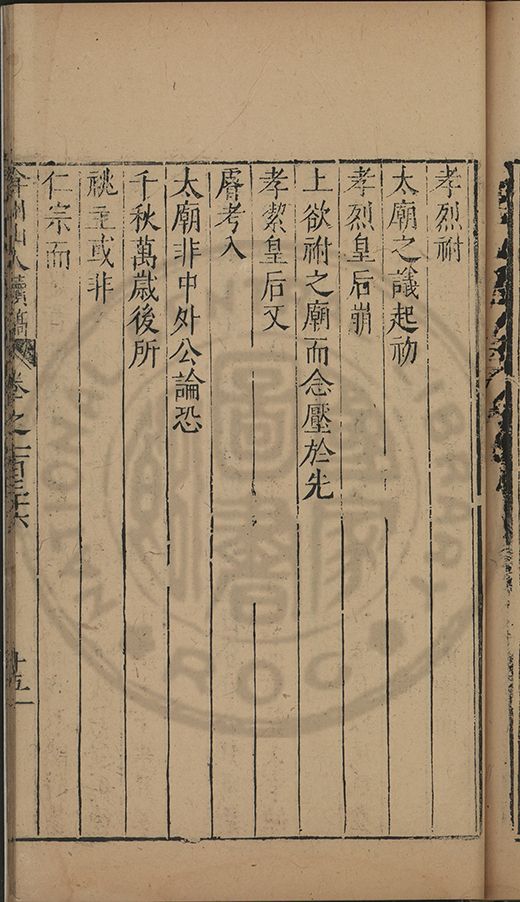 孝烈祔
太廟之議起初
孝烈皇后崩
上欲祔之廟而念壓於先
孝絜皇后又
睿考入
太廟非中外公論恐
千秋萬歲後所
祧主或非
仁宗而
弇州山人續稿 卷之一百三十六 十五